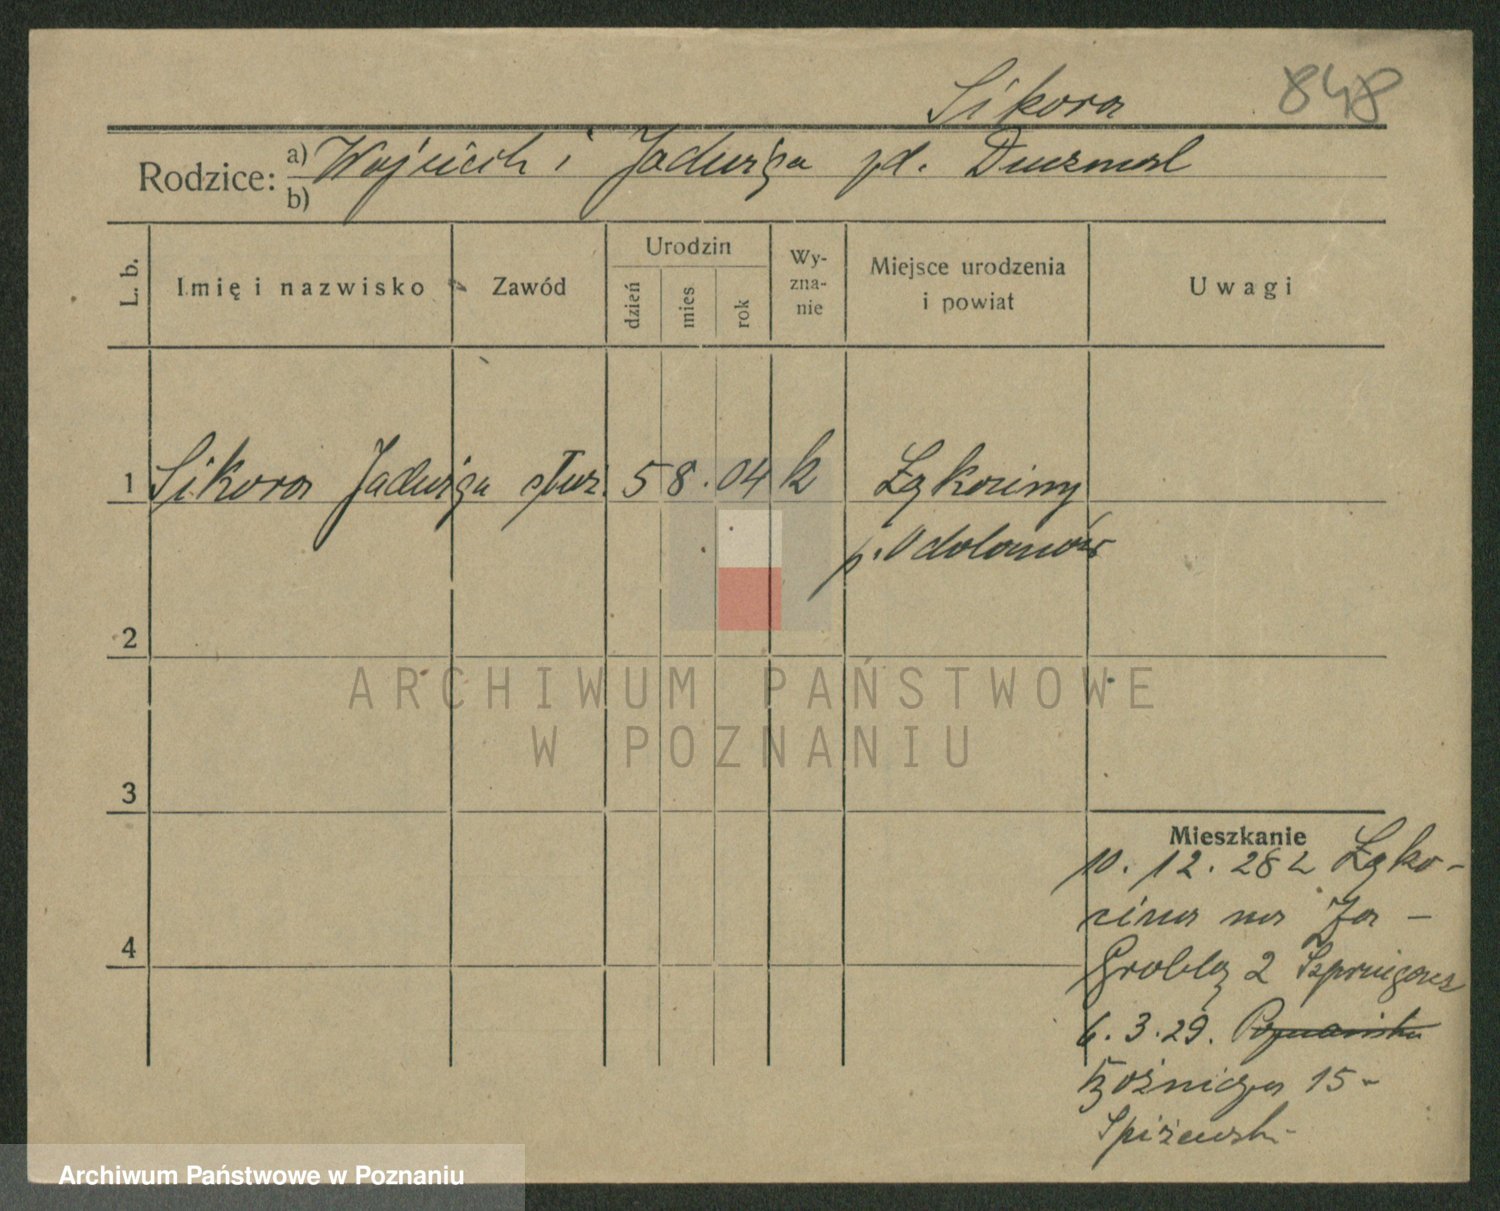 Sikora 848
Rodzice: a) Wojciech i Jadwiga zd.
b)
L. b. Imię i nazwisko Zawód Urodzin dzień mies rok Wy-zna-nie Miejsce urodzenia i powiat Uwagi
1 Sikora Jadwiga służ. 5 8. 04 k Łąkociny
p. Odolanów
2
3
4
Mieszkanie
10. 12. 28 z Łąko-
cina na Za-
Groblą 2
6. 3. 29. Poznańska
Bóżnicza 15 -
Spiżewski
ARCHIWUM PAŃSTWOWE
W POZNANIU
Archiwum Państwowe w Poznaniu